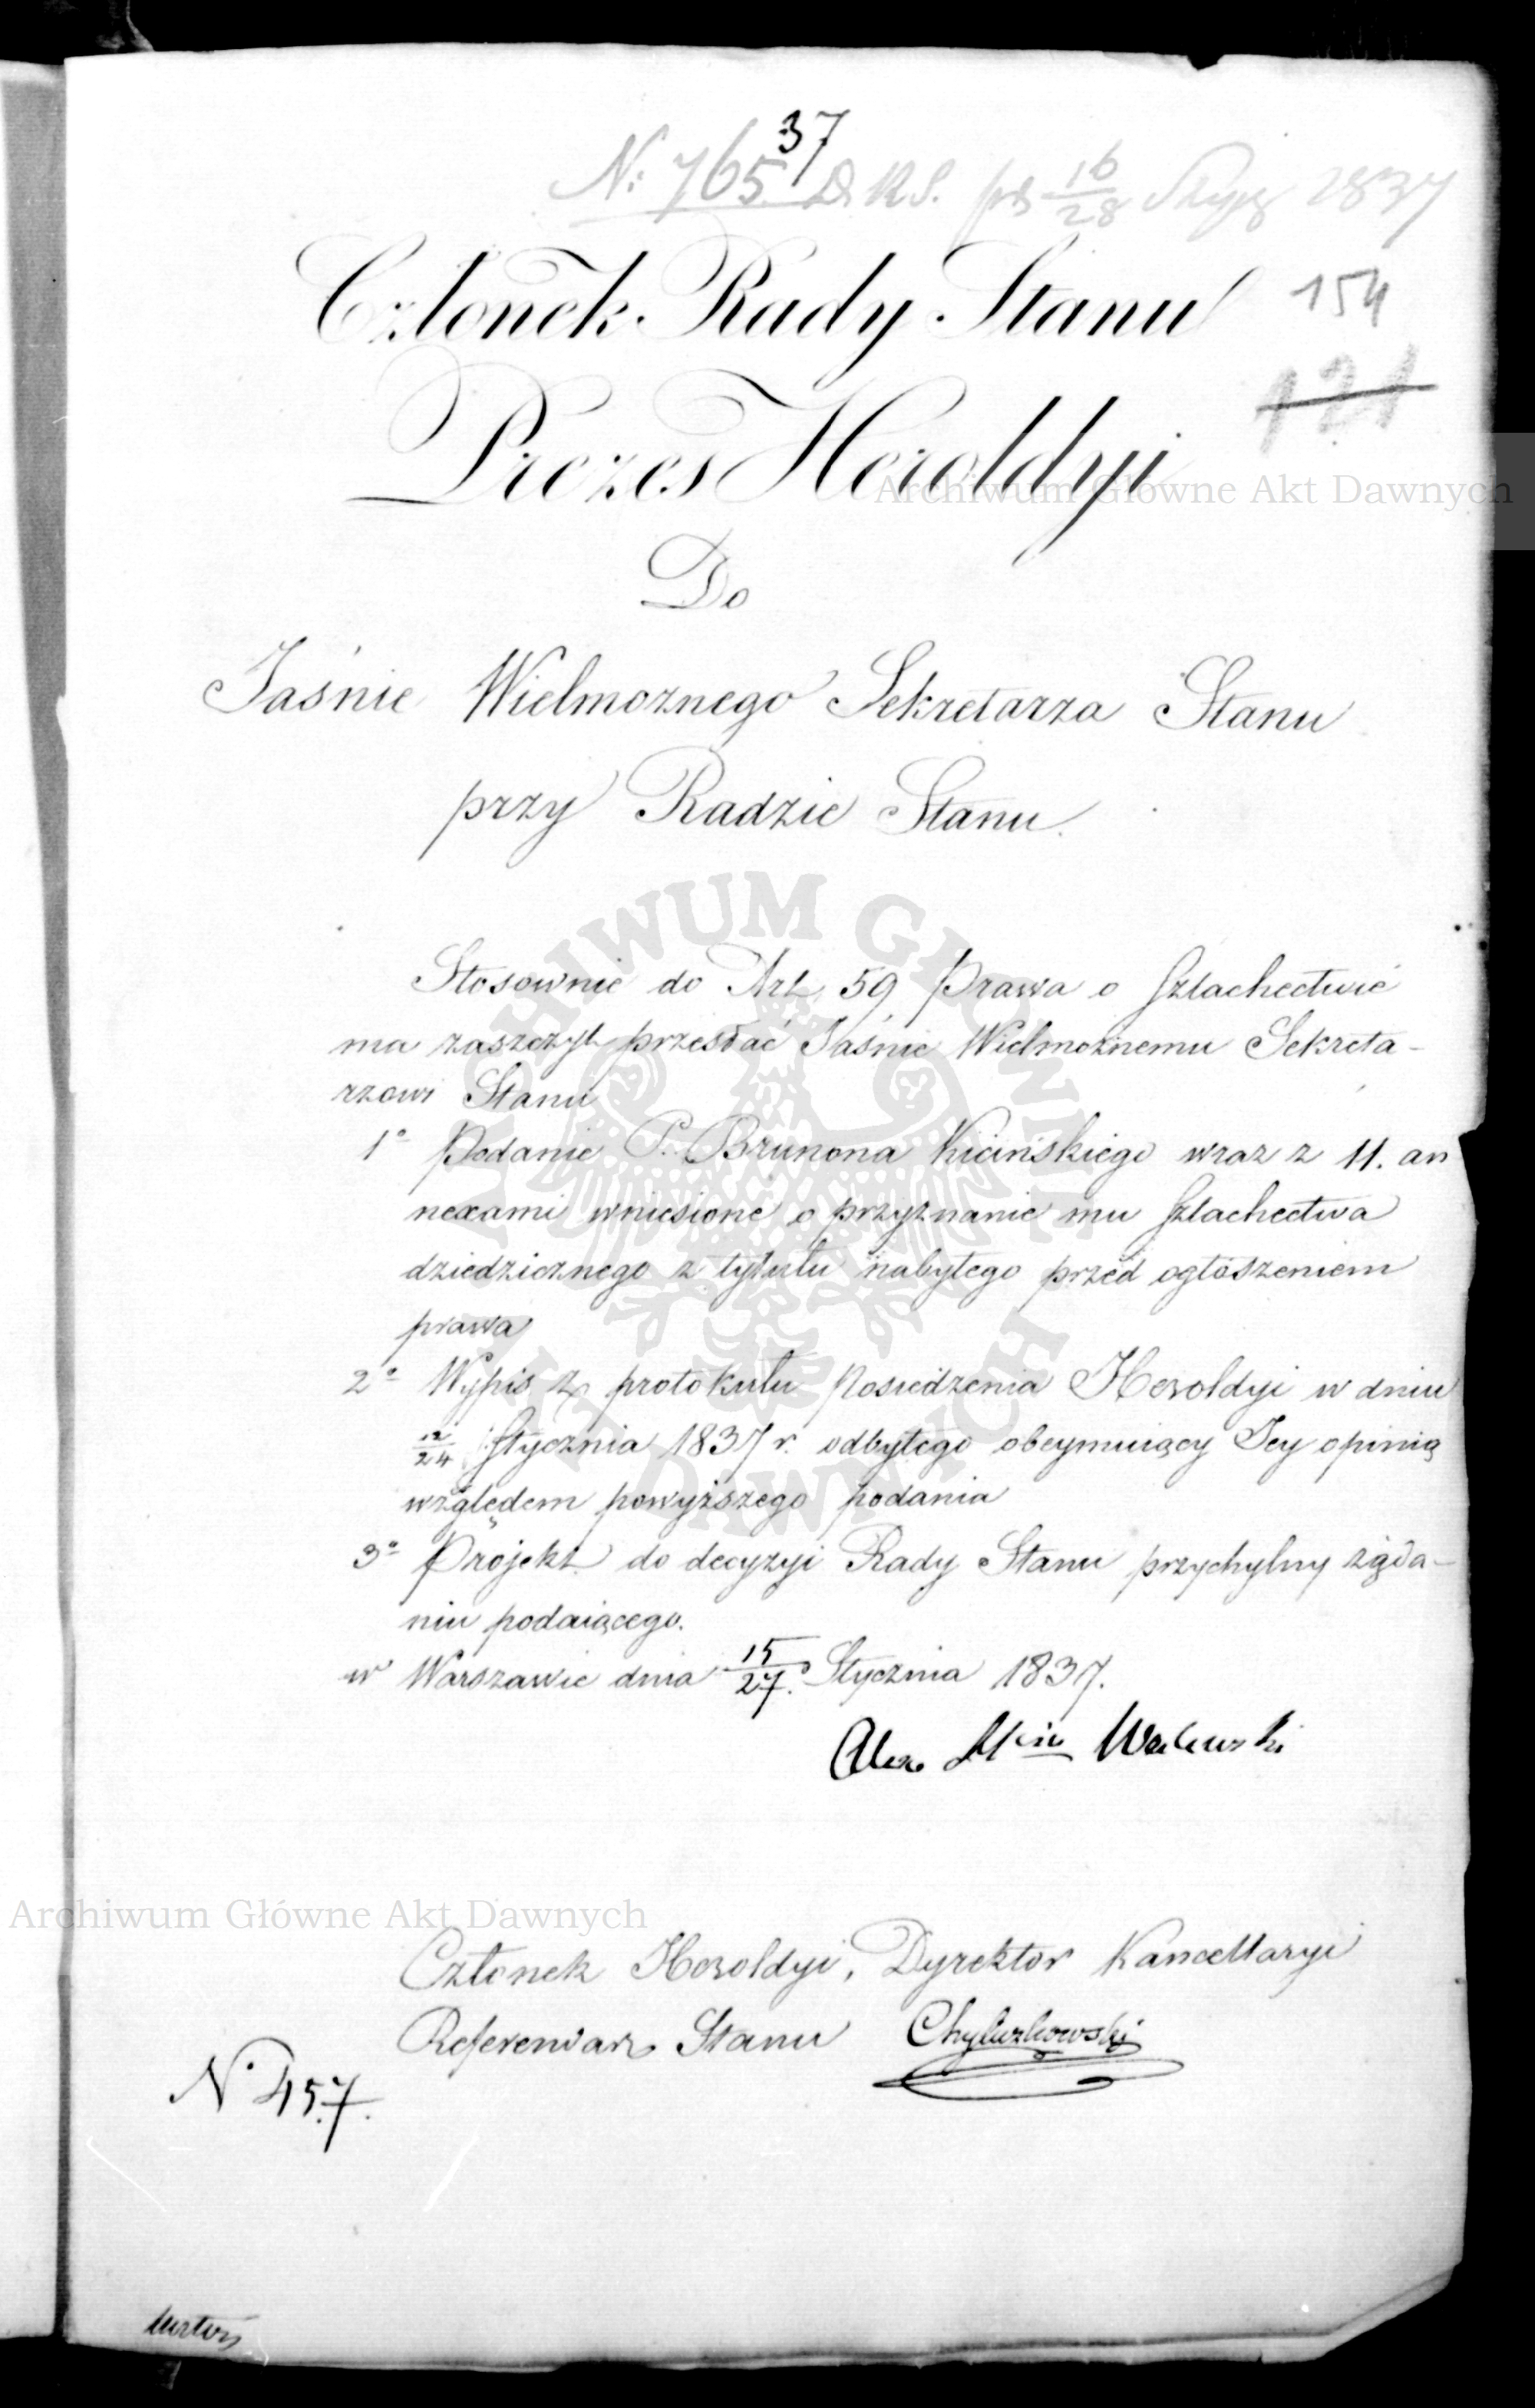 37
N: 765 D.R.S. pr 16/28 Stycz 1837
Członek Rady Stanu
154
121
Prezes Heroldyi
Archiwum Główne Akt Dawnych
Do
Jaśnie Wielmożnego Sekretarza Stanu
przy Radzie Stanu.
ARCHIWUM GŁÓWNE AKT DAWNYCH
Stosownie do Art. 59 Prawa o Szlachectwie
ma zaszczyt przesłać Jaśnie Wielmożnemu Sekreta-
rzowi Stanu
1o Podanie P. Brunona Kicińskiego wraz z 11. an
nexami wniesione o przyznanie mu Szlachectwa
dziedzicznego z tytułu nabytego przed ogłoszeniem
prawa
2o Wypis z protokułu Posiedzenia Heroldyi w dniu
12/24 Stycznia 1837 r. odbytego obeymuiący Jey opinią
względem powyższego podania
3o Projekt do decyzyi Rady Stanu przychylny żąda-
niu podaiącego.
w Warszawie dnia 15/27. Stycznia 1837.
Alex Walewski
Archiwum Główne Akt Dawnych
Członek Heroldyi, Dyrektor Kancellaryi
Referendarz Stanu Chyliczkowski
N 457.